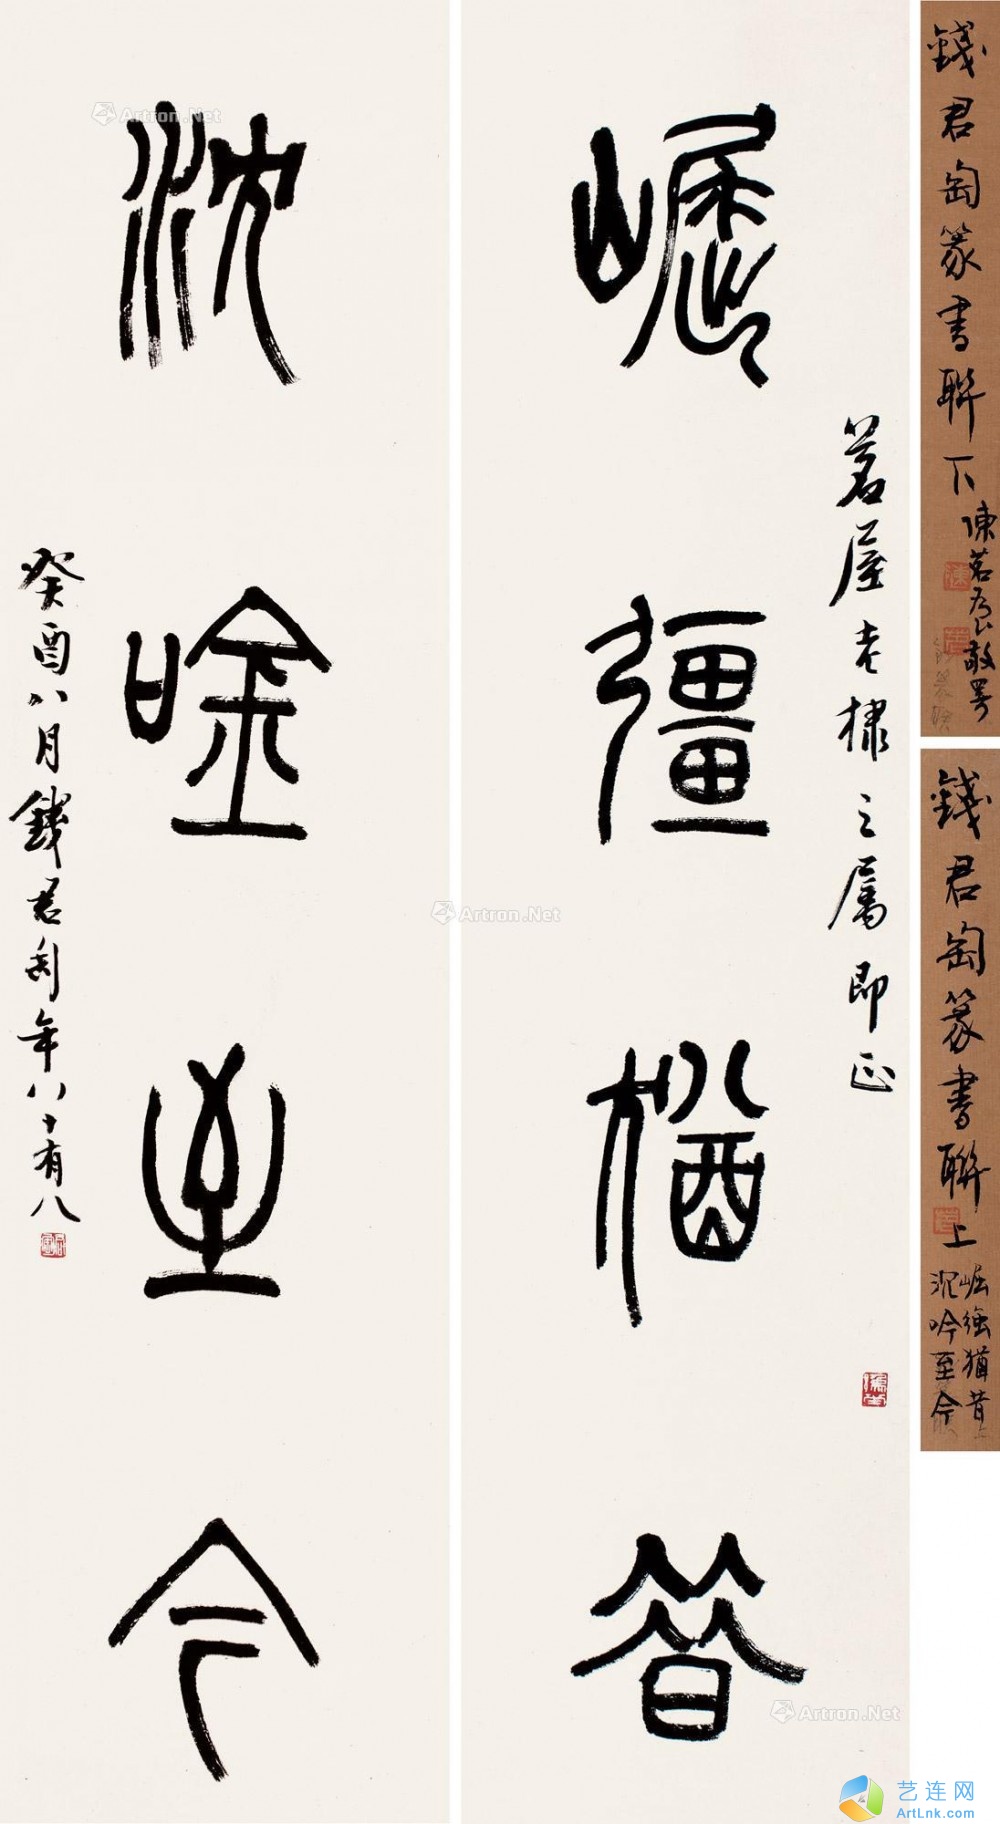 崛彊猶昔
茗屋老棣之属即正
沈唫至今
癸酉八月錢君匋年八十有八
錢君匋篆書聯下
陳茗屋敬署
錢君匋篆書聯上
崛強猶昔
沉吟至今
Artron.Net
Artron.Net
Artron.Net
艺连网
ArtLnk.com